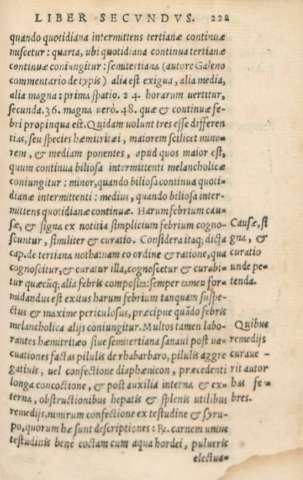 LIBER SECVNDVS. 222
quando quotidiana intermittens tertianæ continuæ
nuscetur: quarta, ubi quotidiana continua tertianæ
continuæ coniungitur: semitertiana (autore Galeno
commentario de typis) alia est exigua, alia media,
alia magna: prima spatio. 24. horarum uertitur,
secunda. 36. magna uerò. 48. quæ & continuæ fe-
bri propinqua est. Quidam uolunt tres esse differen
tias, seu species hæmitritæi, maiorem scilicet mino-
rem, & mediam ponentes, apud quos maior est,
quum continua biliosa intermittenti melancholicæ
coniungitur: minor, quando biliosa continua quoti-
dianæ intermittenti: medius, quando biliosa inter-
mittens quotidianæ continuæ. Harum febrium cau-
sæ, & signa ex notitia simplicium febrium cogno-
scuntur, similiter & curatio. Considera itaq; dicta
cap. de tertiana notha: nam eo ordine & ratione, qua
cognoscitur, & curatur illa, cognoscetur & curabi-
tur quæcūq; alia febris composita: semper tamen for-
midandus est exitus harum febrium tanquam suspe-
ctus & maxime periculosus, præcipue quādo febris
melancholica alijs coniungitur. Multos tamen labo-
rantes hæmitritæo siue semitertiana sanaui post ua-
cuationes factas pilulis de rhabarbaro, pilulis aggre
gatiuis, uel confectione diaphœnicon, præcedenti
longa concoctione, & post auxilia interna & ex-
terna, obstructionibus hepatis & splenis utilibus
remedijs, nimirum confectione ex testudine & syru-
po, quorum hæ sunt descriptiones: ℞. carnem unius
testudinis bene coctam cum aqua hordei, pulueris
electua-
Causæ, si
gna, &
curatio
unde pe-
tenda.
Quibus
remedijs
curaue-
rit autor
has fe-
bres.